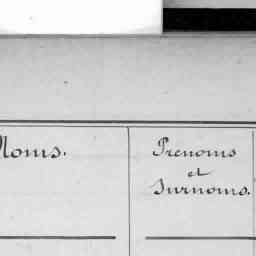 Noms.
Prenoms
et
Surnoms.